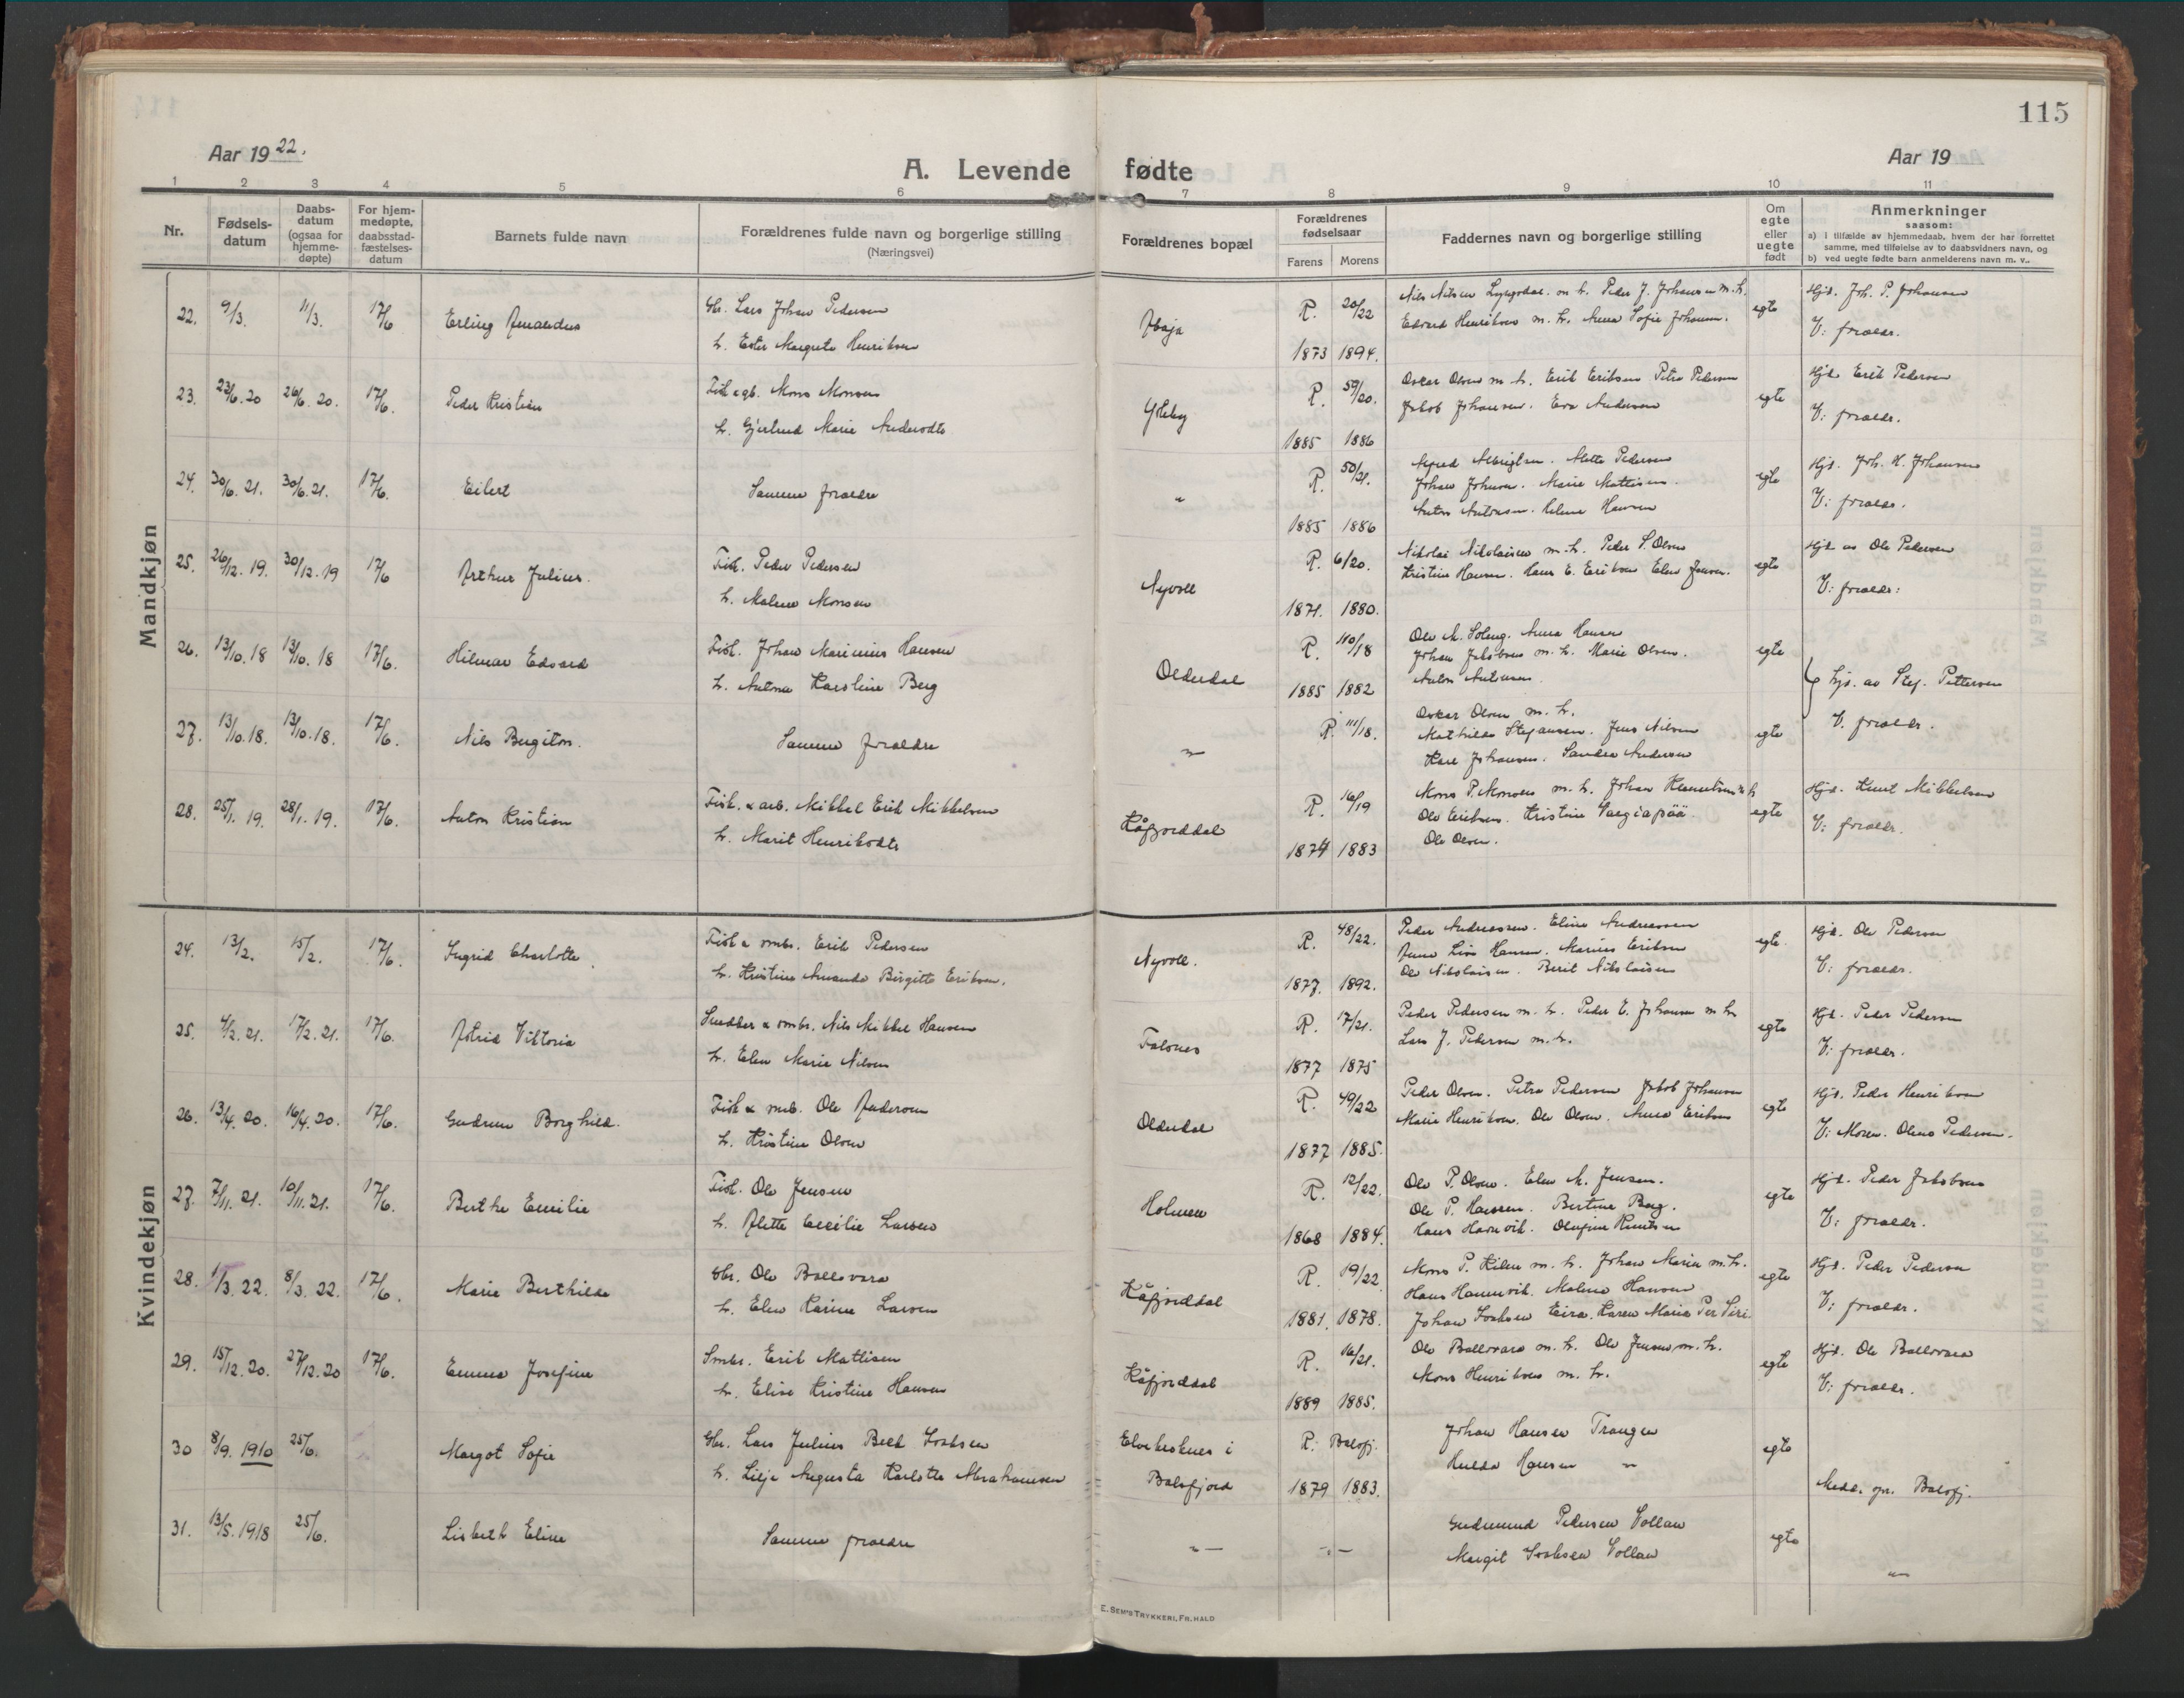 115
Aar 1922.
A. Levende fødte
Aar 19
1 2 3 4 5 6 7 8 9 10 11
Nr.
Fødsels-
datum
Daabs-
datum
(ogsaa for
hjemme-
døpte)
For hjem-
medøpte,
daabsstad-
fæstelses-
datum
Barnets fulde navn
Forældrenes fulde navn og borgerlige stilling
(Næringsvei)
Forældrenes bopæl
Forældrenes
fødselsaar
Farens Morens
Faddernes navn og borgerlige stilling
Om
egte
eller
uegte
født
Anmerkninger
saasom:
a) i tilfælde av hjemmedaab, hvem der har forrettet
samme, med tilføielse av to daabsvidners navn, og
b) ved uegte fødte barn anmelderens navn m. v..
Mandkjøn
22. 9/3. 11/3. 17/6 Erling Amandus Gbr. Lars Johan Pedersen R. 20/22 Nils Nilsen m. h. Peder J. Johansen m. h. egte Hjd. Joh. P. Johansen
h. Ester Margrete Henriksen 1873 1894. Edvard Henriksen m. h. Anna Sofie Johansen. V: foreldr.
23. 23/6. 20 26/6. 20. 17/6. Peder Kristian Fisk. & gb. Mons Monsen R. 59/20. Oskar Olsen m. h. Erik Eriksen Petra Pedersen egte Hjd. Erik Pedersen
h. Gjertrud Marie Andersdtr 1885 1886 Jakob Johansen. Eva Andersen V: foreldr.
24. 30/6. 21. 30/6. 21. 17/6. Eilert Samme foreldre " R. 50/21. Alfred Albrigtsen. Mette Pedersen egte Hjd. Joh. H. Johansen
Johan Johnsen. Marie Mattisen.
1885 1886 Anton Antonsen. Hansen V: foreldr.
25. 26/12. 19. 30/12. 19 17/6 Arthur Julius. Fisk. Peder Pedersen Nyvoll R. 6/20. Nikolai Nikolaisen m. h. Peder S. Olsen egte Hjd. av Ole Pedersen
h. Malene Monsen 1871. 1880. Kristine Hansen. Hans E. Eriksen Elen Jensen. V: foreldr:
26. 13/10. 18 13/10. 18 17/6. Hilmar Edvard Fisk. Johan Marinius Hansen Olderdal R. 110/18 Ole M. Soleng. Anna Hansen egte
h. Antona Karoline Berg 1885 1882 Johan Jakobsen m. h. Marie Olsen. hjd. av Stef. Pettersen
Anton Antonsen.
27. 13/10. 18. 13/10. 18. 17/6. Nils Bergiton. Samme foreldre " R. 111/18. Oskar Olsen m. h. egte V. foreldr.
Mathilde Stefansen. Jens Nilsen
Karl Johansen. Sandra Andersen
28. 25/1. 19. 28/1. 19. 17/6. Anton Kristian Fisk. & arb. Mikkel Erik Mikkelsen Kåfjorddal R. 16/19 Mons P. Monsen m. h. Johan m h egte Hjd. Knut Mikkelsen
h. Marit Henriksdtr 1874 1883 Ole Eriksen. Kristine V: foreldr.
Ole Olsen.
Kvindekjøn
24. 13/2. 15/2. 17/6. Ingrid Charlotte Fisk & smbr. Erik Pedersen Nyvoll. R. 48/22. Peder Andreassen. Eline Andreassen egte. Hjd. Ole Pedersen
h. Kristine Amanda Birgitte Eriksen. 1877. 1892. Hansen. Marius Eriksen V: foreldr.
Ole Nikolaisen. Berit Nikolaisen
25. 4/2. 21. 17/2. 21. 17/6. Astrid Viktoria Snedker & smbr. Nils Mikkel Hansen Falsnes R. 17/21. Peder Pedersen m. h. Peder E. Johansen m h egte Hjd. Peder Pedersen
h. Elen Marie Nilsen 1877 1875 Lars J. Pedersen m. h. V: foreldr.
26. 13/4. 20. 16/4. 20. 17/6. Gudrun Borghild. Fisk & smb. Ole Andersen Olderdal R. 49/22 Peder Olsen. Petra Pedersen Jakob Johansen egte Hjd. Peder Henriksen
h. Kristine Olsen 1877 1885. Marie Henriksen. Ole Olsen. Anna Eriksen V: Moren. Olene Pedersen.
27. 7/11. 21. 10/11. 21. 17/6. Berthe Emilie Fisk. Ole Jensen Holmen R. 12/22. Ole P. Olsen. Elen M. Jensen. egte Hjd. Peder Jakobsen
h. Alette Cecilie Larsen 1868 1884. Ole P. Hansen. Bertine Berg. V: foreldr.
Hans Olufine Knutsen
28. 1/3. 22. 8/3. 22. 17/6. Marie Berthilde Gbr. Ole Ballovara Kåfjorddal R. 19/22 Mons P. m. h. Johan Maria m. h. egte Hjd. Peder Pedersen
h. Elen Karine Larsen 1881. 1878. Hans Malene Hansen V: foreldr.
Johan Isaksen Karen Maria Per Siri.
29. 15/12. 20. 27/12. 20 17/6. Emma Josefine Smbr. Erik Mattisen Kåfjorddal R. 16/21. Ole Ballovara m. h. Ole Jensen m. h. egte Hjd. Ole Ballovara
h. Elise Kristine Hansen 1889 1885. Mons Henriksen m. h. V: foreldr.
30 8/9. 1910 25/6. Margot Sofie Gbr. Lars Julius Beck Isaksen i R. Balsfj. Johan Hansen Trangen egte
h. Lilja Augusta Karlotte Abrahamsen Balsfjord 1879 1883. Hulda Hansen " Medd. spr. Balsfj.
31. 13/5. 1918 25/6. Lisbeth Eline Samme foreldre " — " — Gudmund Pedersen Vollan egte
Margit Isaksen Vollan "
E. SEM'S TRYKKERI, FR.HALD